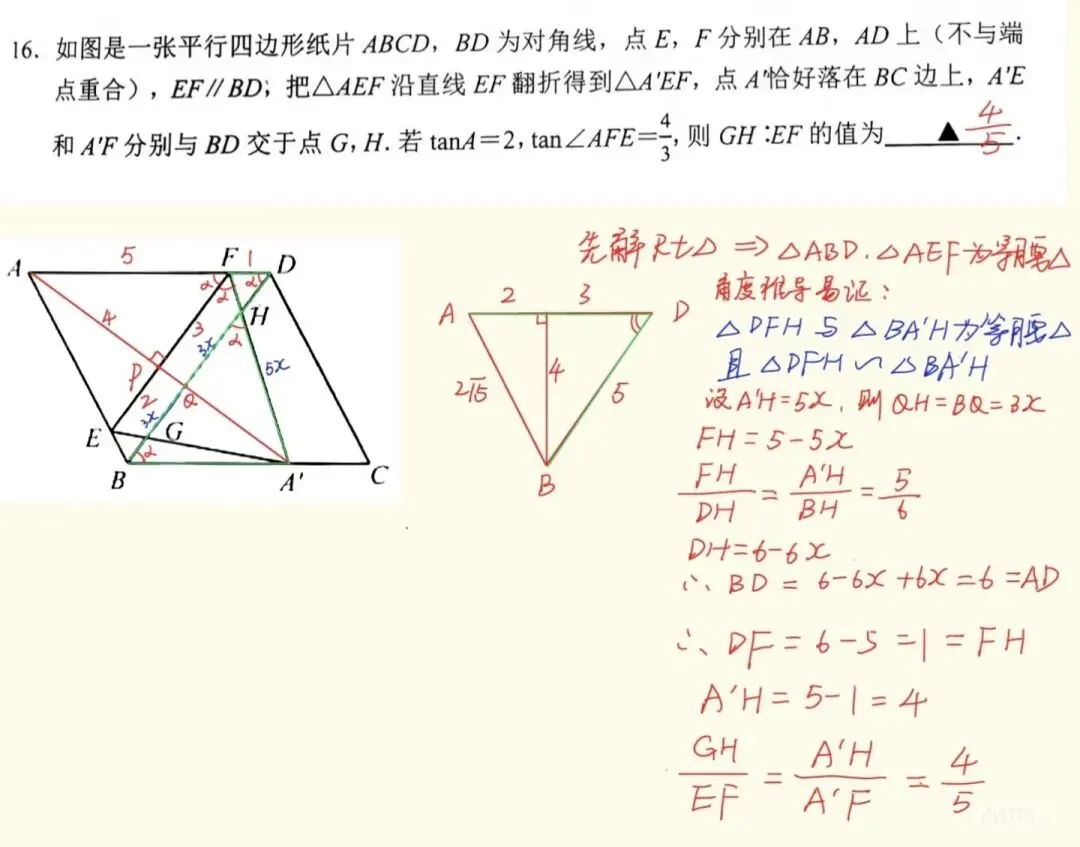 16. 如图是一张平行四边形纸片 ABCD，BD 为对角线，点 E，F 分别在 AB，AD 上（不与端
点重合），EF∥BD；把△AEF 沿直线 EF 翻折得到△A'EF，点 A'恰好落在 BC 边上，A'E
和 A'F 分别与 BD 交于点 G，H. 若 tanA＝2，tan∠AFE＝4/3，则 GH∶EF 的值为 ▲ 4/5 .
先解Rt△ ⇒ △ABD、△AEF为等腰△
角度推导易证：
△DFH与△BA'H为等腰△
且△DFH∽△BA'H
设A'H=5x，则QH=BQ=3x
FH=5-5x
FH/DH=A'H/BH=5/6
DH=6-6x
∴BD=6-6x+6x=6=AD
∴DF=6-5=1=FH
A'H=5-1=4
GH/EF=A'H/A'F=4/5
A 5 F 1 D
α α α
4 3 H
3x α 5x
P
2 Q
3x
E G
α
B A' C
A 2 3 D
2√5 4 5
B